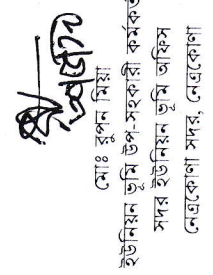 মোঃ রুপন মিয়া
ইউনিয়ন ভূমি উপ-সহকারী কর্মকর্ত
সদর ইউনিয়ন ভূমি অফিস
নেত্রকোণা সদর, নেত্রকোণা